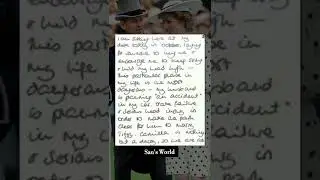 I am sitting here at my
desk today in October, longing
for someone to hug me &
encourage me to keep strong
& hold my head high -
this particular phase in
my life is the most
dangerous - my husband
is planning "an accident"
in my car, brake failure
& serious head injury in
order to make the path
clear for him to marry
Tiggy. Camilla is nothing
but a decoy, so we are
San's World